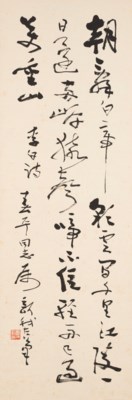 朝辭白帝彩雲間千里江陵一
日還兩岸猿聲啼不住輕舟已過
萬重山 李白詩 同志屬